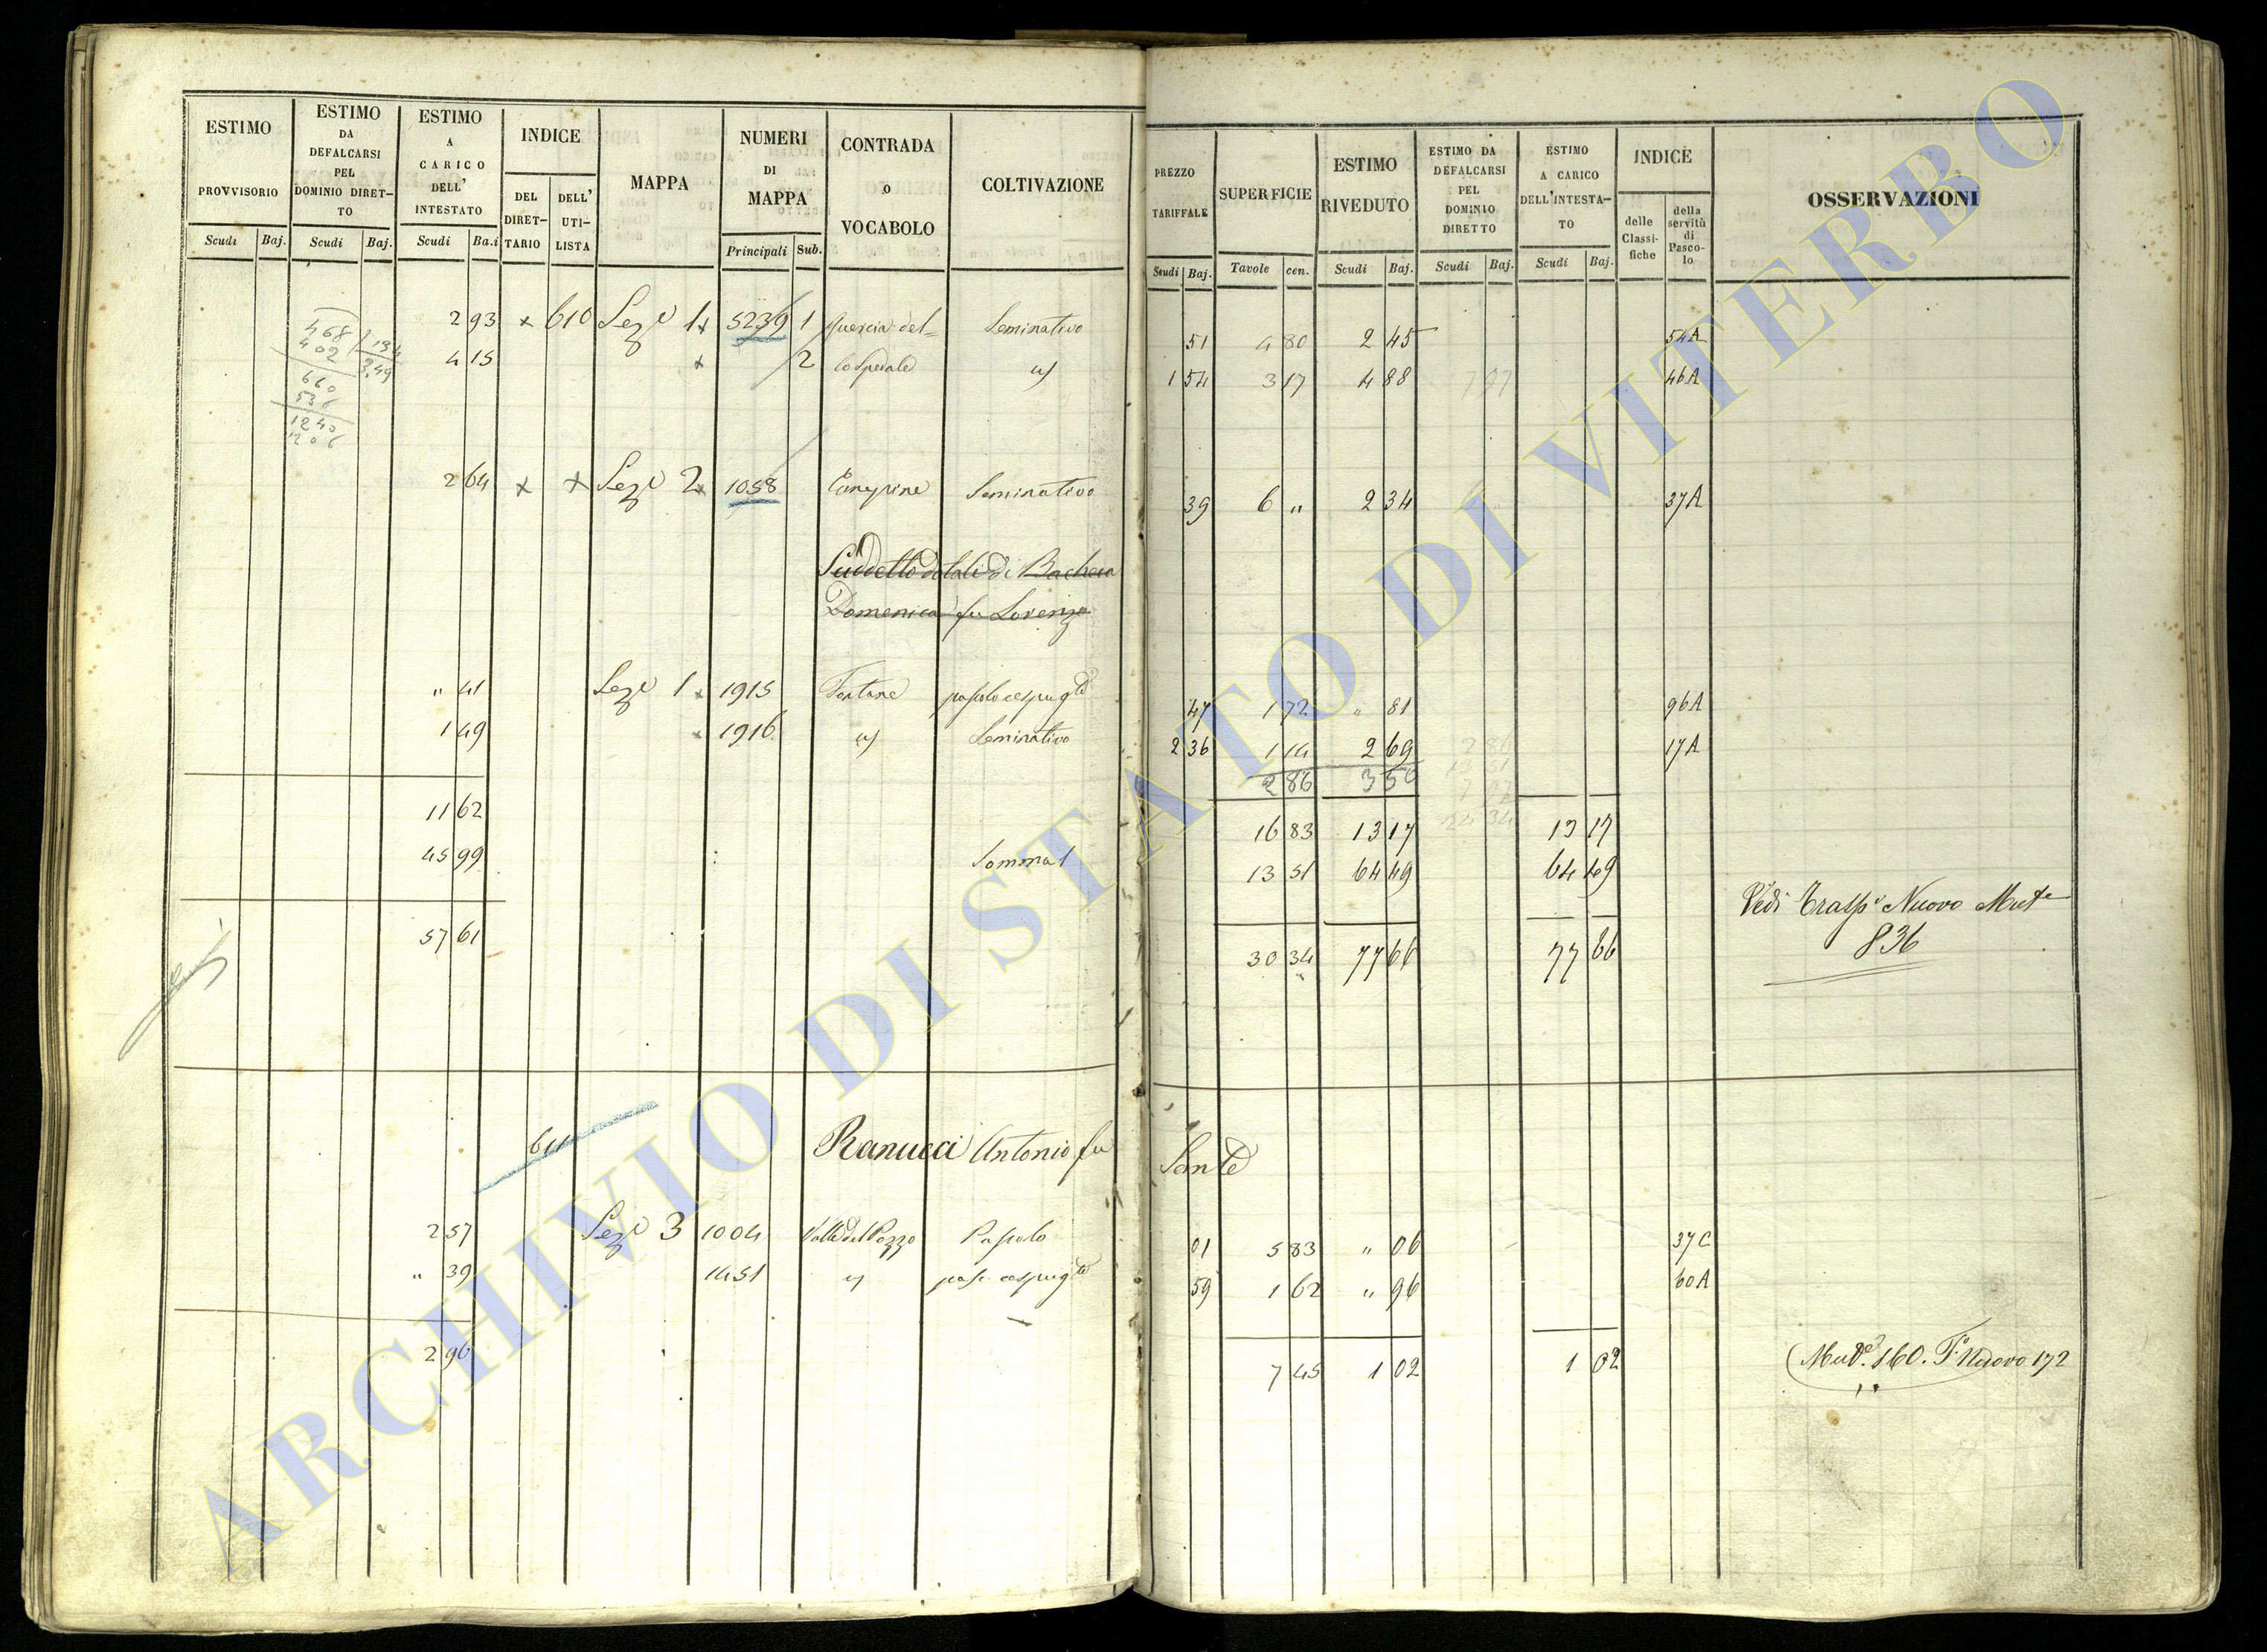 ESTIMO PROVVISORIO Scudi Baj.
ESTIMO DA DEFALCARSI PEL DOMINIO DIRETTO Scudi Baj.
ESTIMO A CARICO DELL' INTESTATO Scudi Ba.i
INDICE DEL DIRETTARIO DELL' UTILISTA
MAPPA
NUMERI DI MAPPA Principali Sub.
CONTRADA o VOCABOLO
COLTIVAZIONE
PREZZO TARIFFALE Scudi Baj.
SUPERFICIE Tavole cen.
ESTIMO RIVEDUTO Scudi Baj.
ESTIMO DA DEFALCARSI PEL DOMINIO DIRETTO Scudi Baj.
ESTIMO A CARICO DELL'INTESTATO Scudi Baj.
INDICE delle Classifiche della servitù di Pascolo
OSSERVAZIONI
2 93 x 610 Seze 1 x 5239 1 Quercia del= Seminativo 51 4 80 2 45 54A
4 15 x 2 lospedale 1 54 3 17 4 88 7 97 46A
468
402
660
536
1240
1206
2 64 x x Seze 2 x 1058 Campine Seminativo 39 6 " 2 34 37A
Suddetto dotali di Bachera
Domenica fu Lorenzo
" 41 Seze 1 x 1915 Fontane pascolo cespugto 47 1 72 " 81 96A
1 49 x 1916 Seminativo 2 36 1 14 2 69 17A
2 86 3 50
11 62 16 83 13 17 13 17
45 99 Somma 1 13 51 64 49 64 49
57 61 30 34 77 66 77 66
Vedi Traspo Nuovo Mute
836
611 Ranucci Antonio fu Sante
2 57 Seze 3 1004 Valle del Pozzo Pascolo 01 5 83 " 06 37C
" 39 1451 pasc cespugto 59 1 62 " 96 60A
2 96 7 45 1 02 1 02 Mute. 160. To Nuovo 172
ARCHIVIO DI STATO DI VITERBO